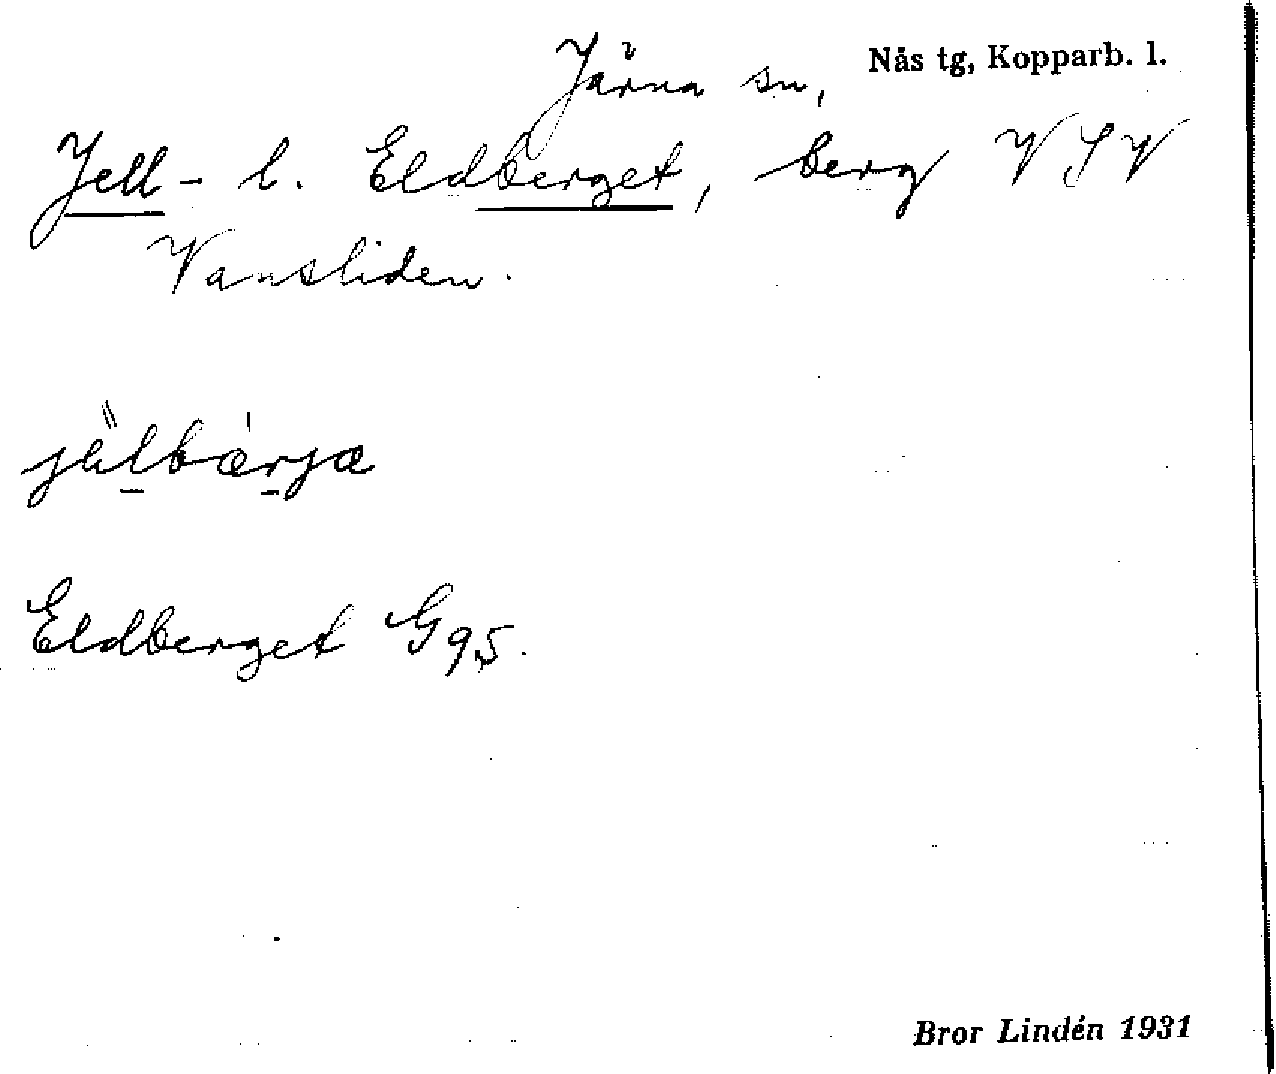 Järna sn, Nås tg, Kopparb. l.
Jell- l. Eldberget, berg V S V
Vansliden.
jälbærjæ
Eldberget G 95.
Bror Lindén 1931